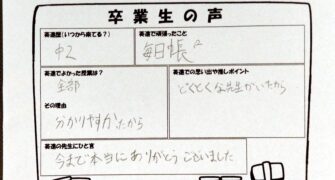 卒業生の声
英進度(いつから来てる?)
中2
英進で頑張ったこと
毎日帳
英進でよかった授業は?
全部
その理由
分かりやすかたから
英進での思い出や推しポイント
どくとくな先生がいたから
英進の先生にひと言
今まで本当にありがとうございました